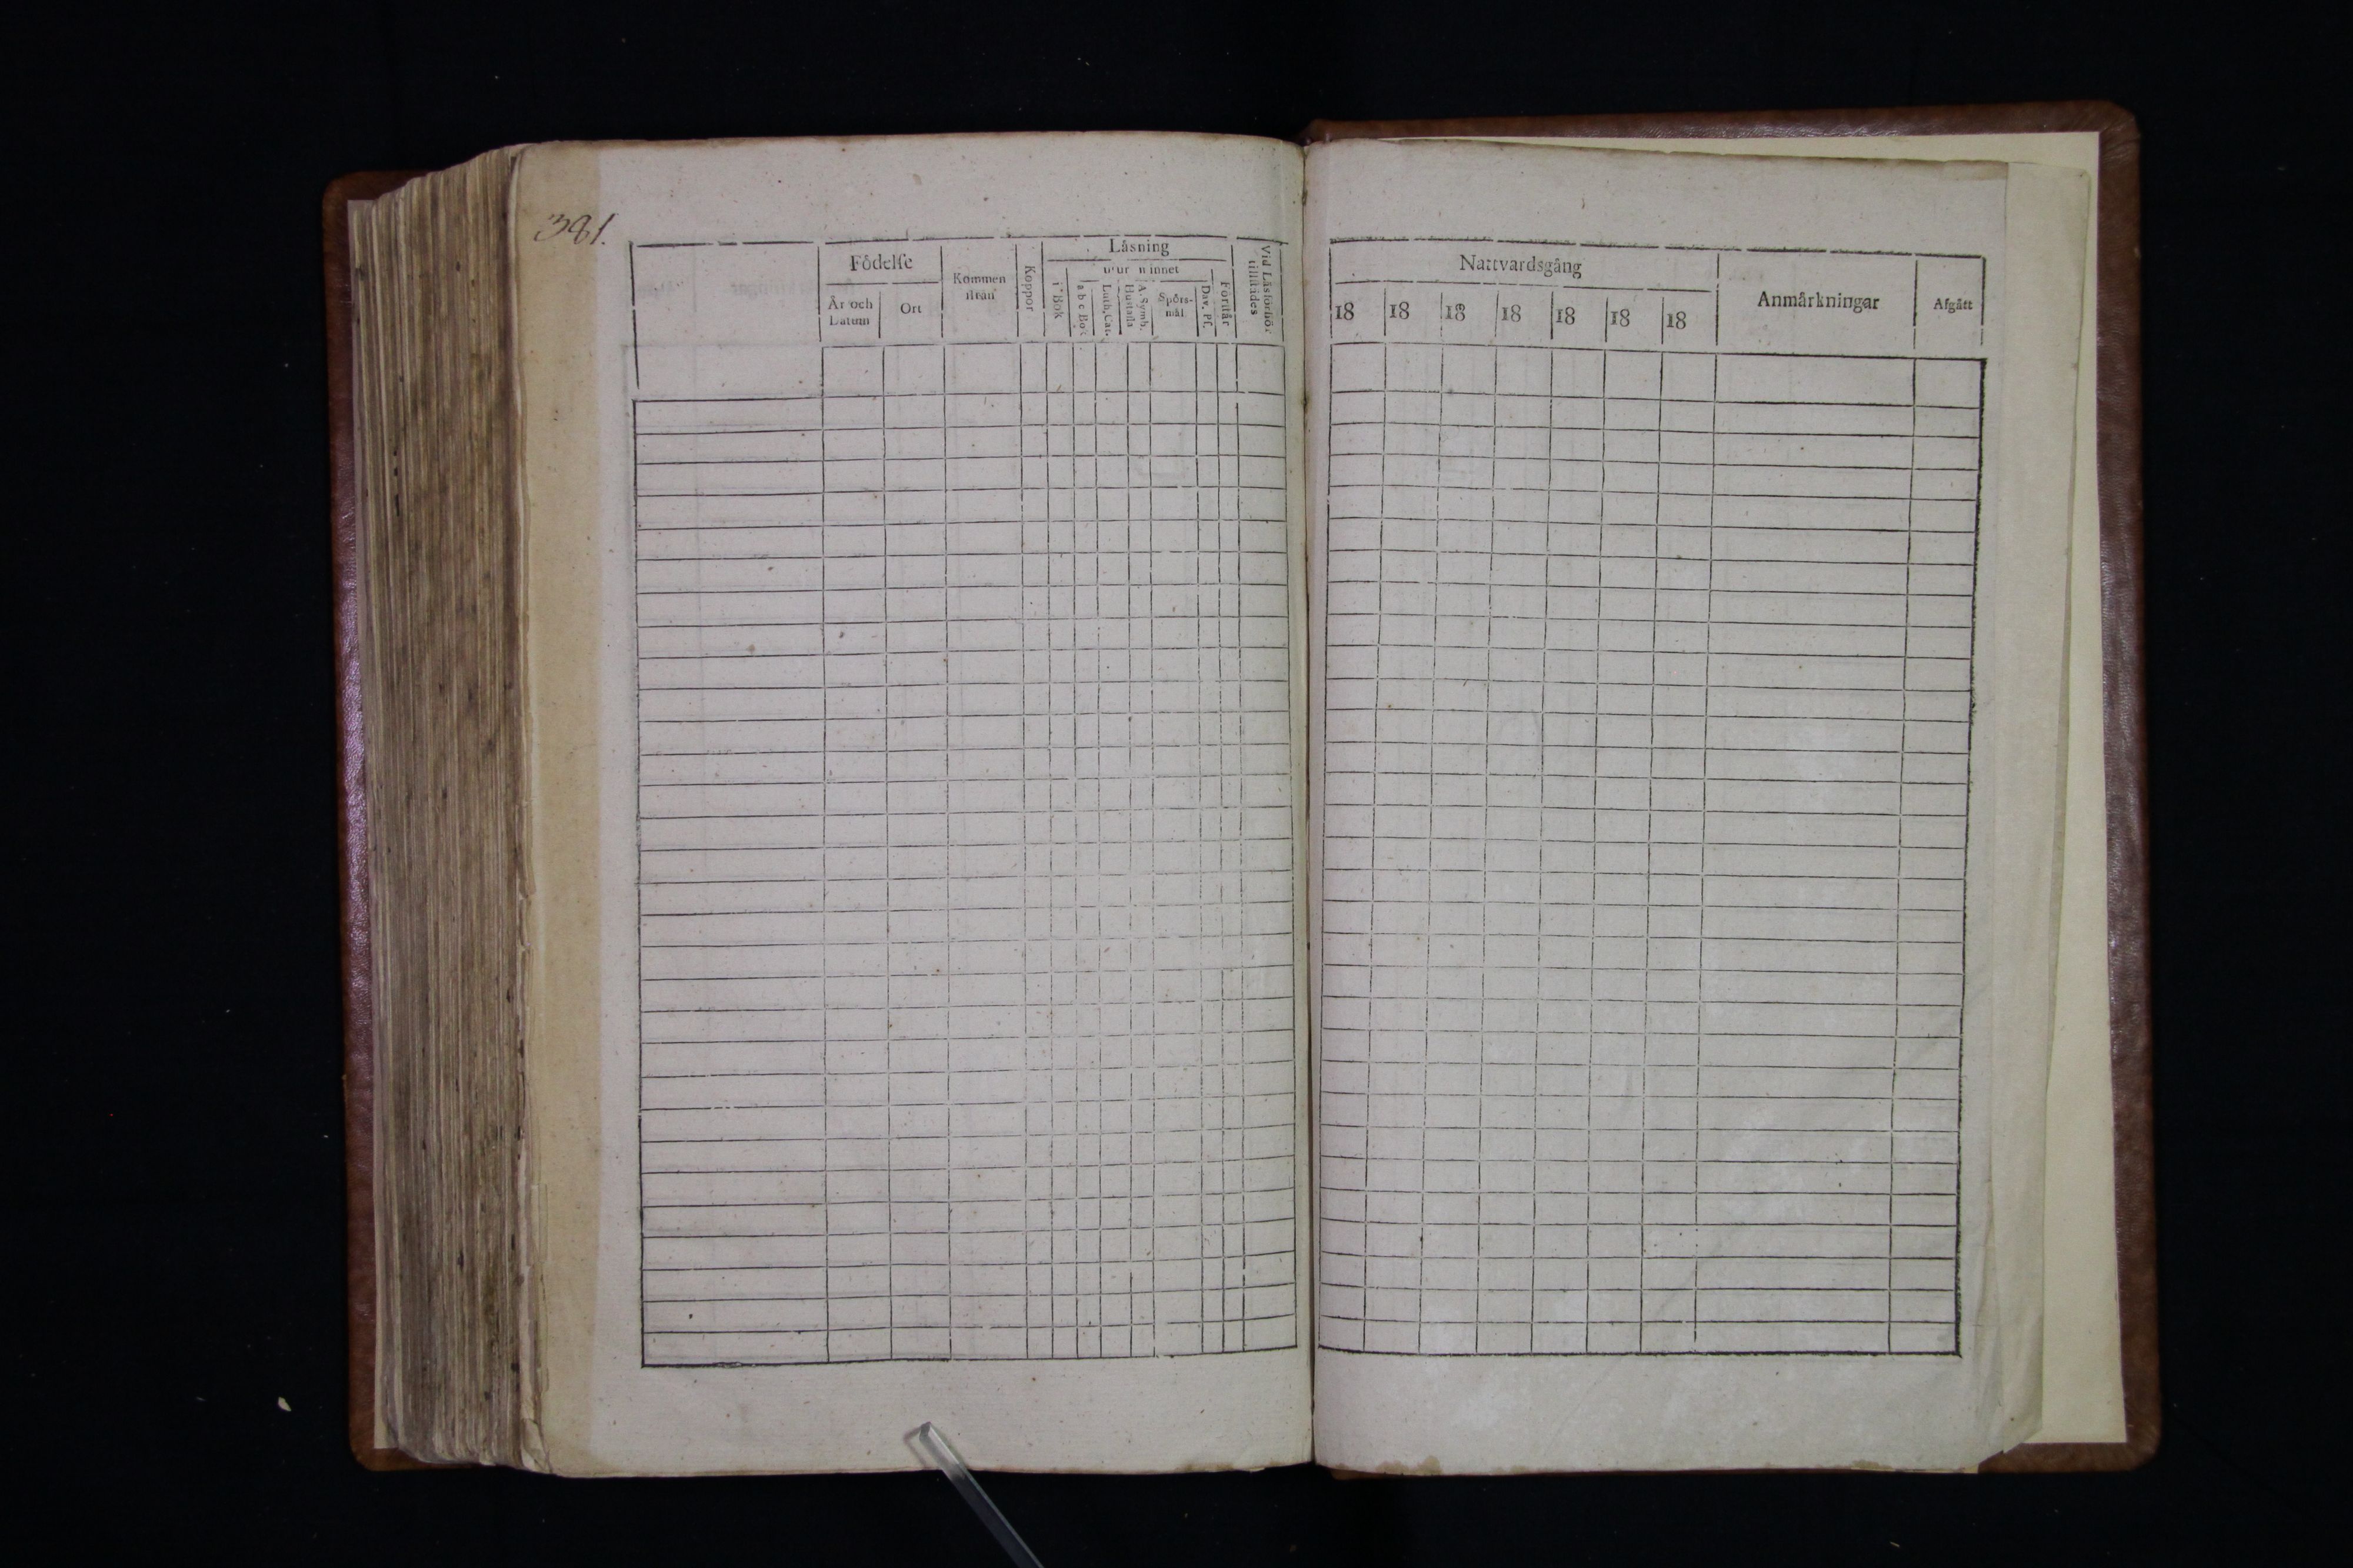 381.
Födelse
År och
Datum
Ort
Kommen
ifrån
Koppor
Läsning
utur minnet
i Bok
a b c Bok
Luth. Cat.
Hustafla
A. Symb.
Spörs-
mål
Dav. Ps.
Förstår
Vid Läsförhör
tillstädes
Nattvardsgång
18 18 18 18 18 18 18
Anmärkningar
Afgått